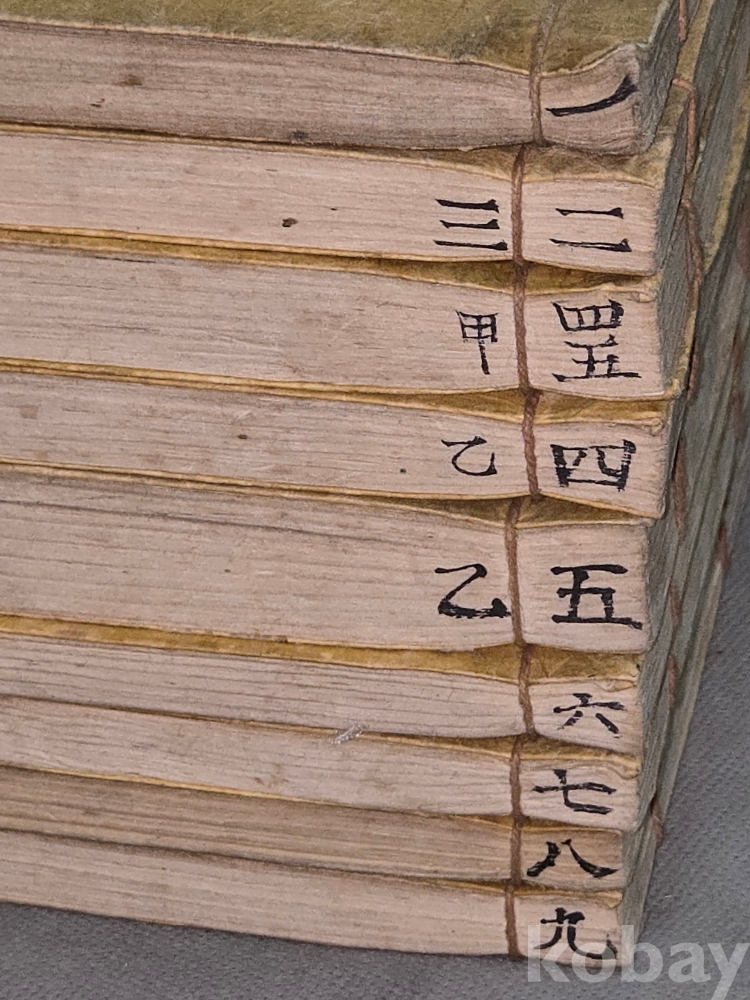 一
三 二
甲 四五
乙 四
乙 五
六
七
八
九
kobay